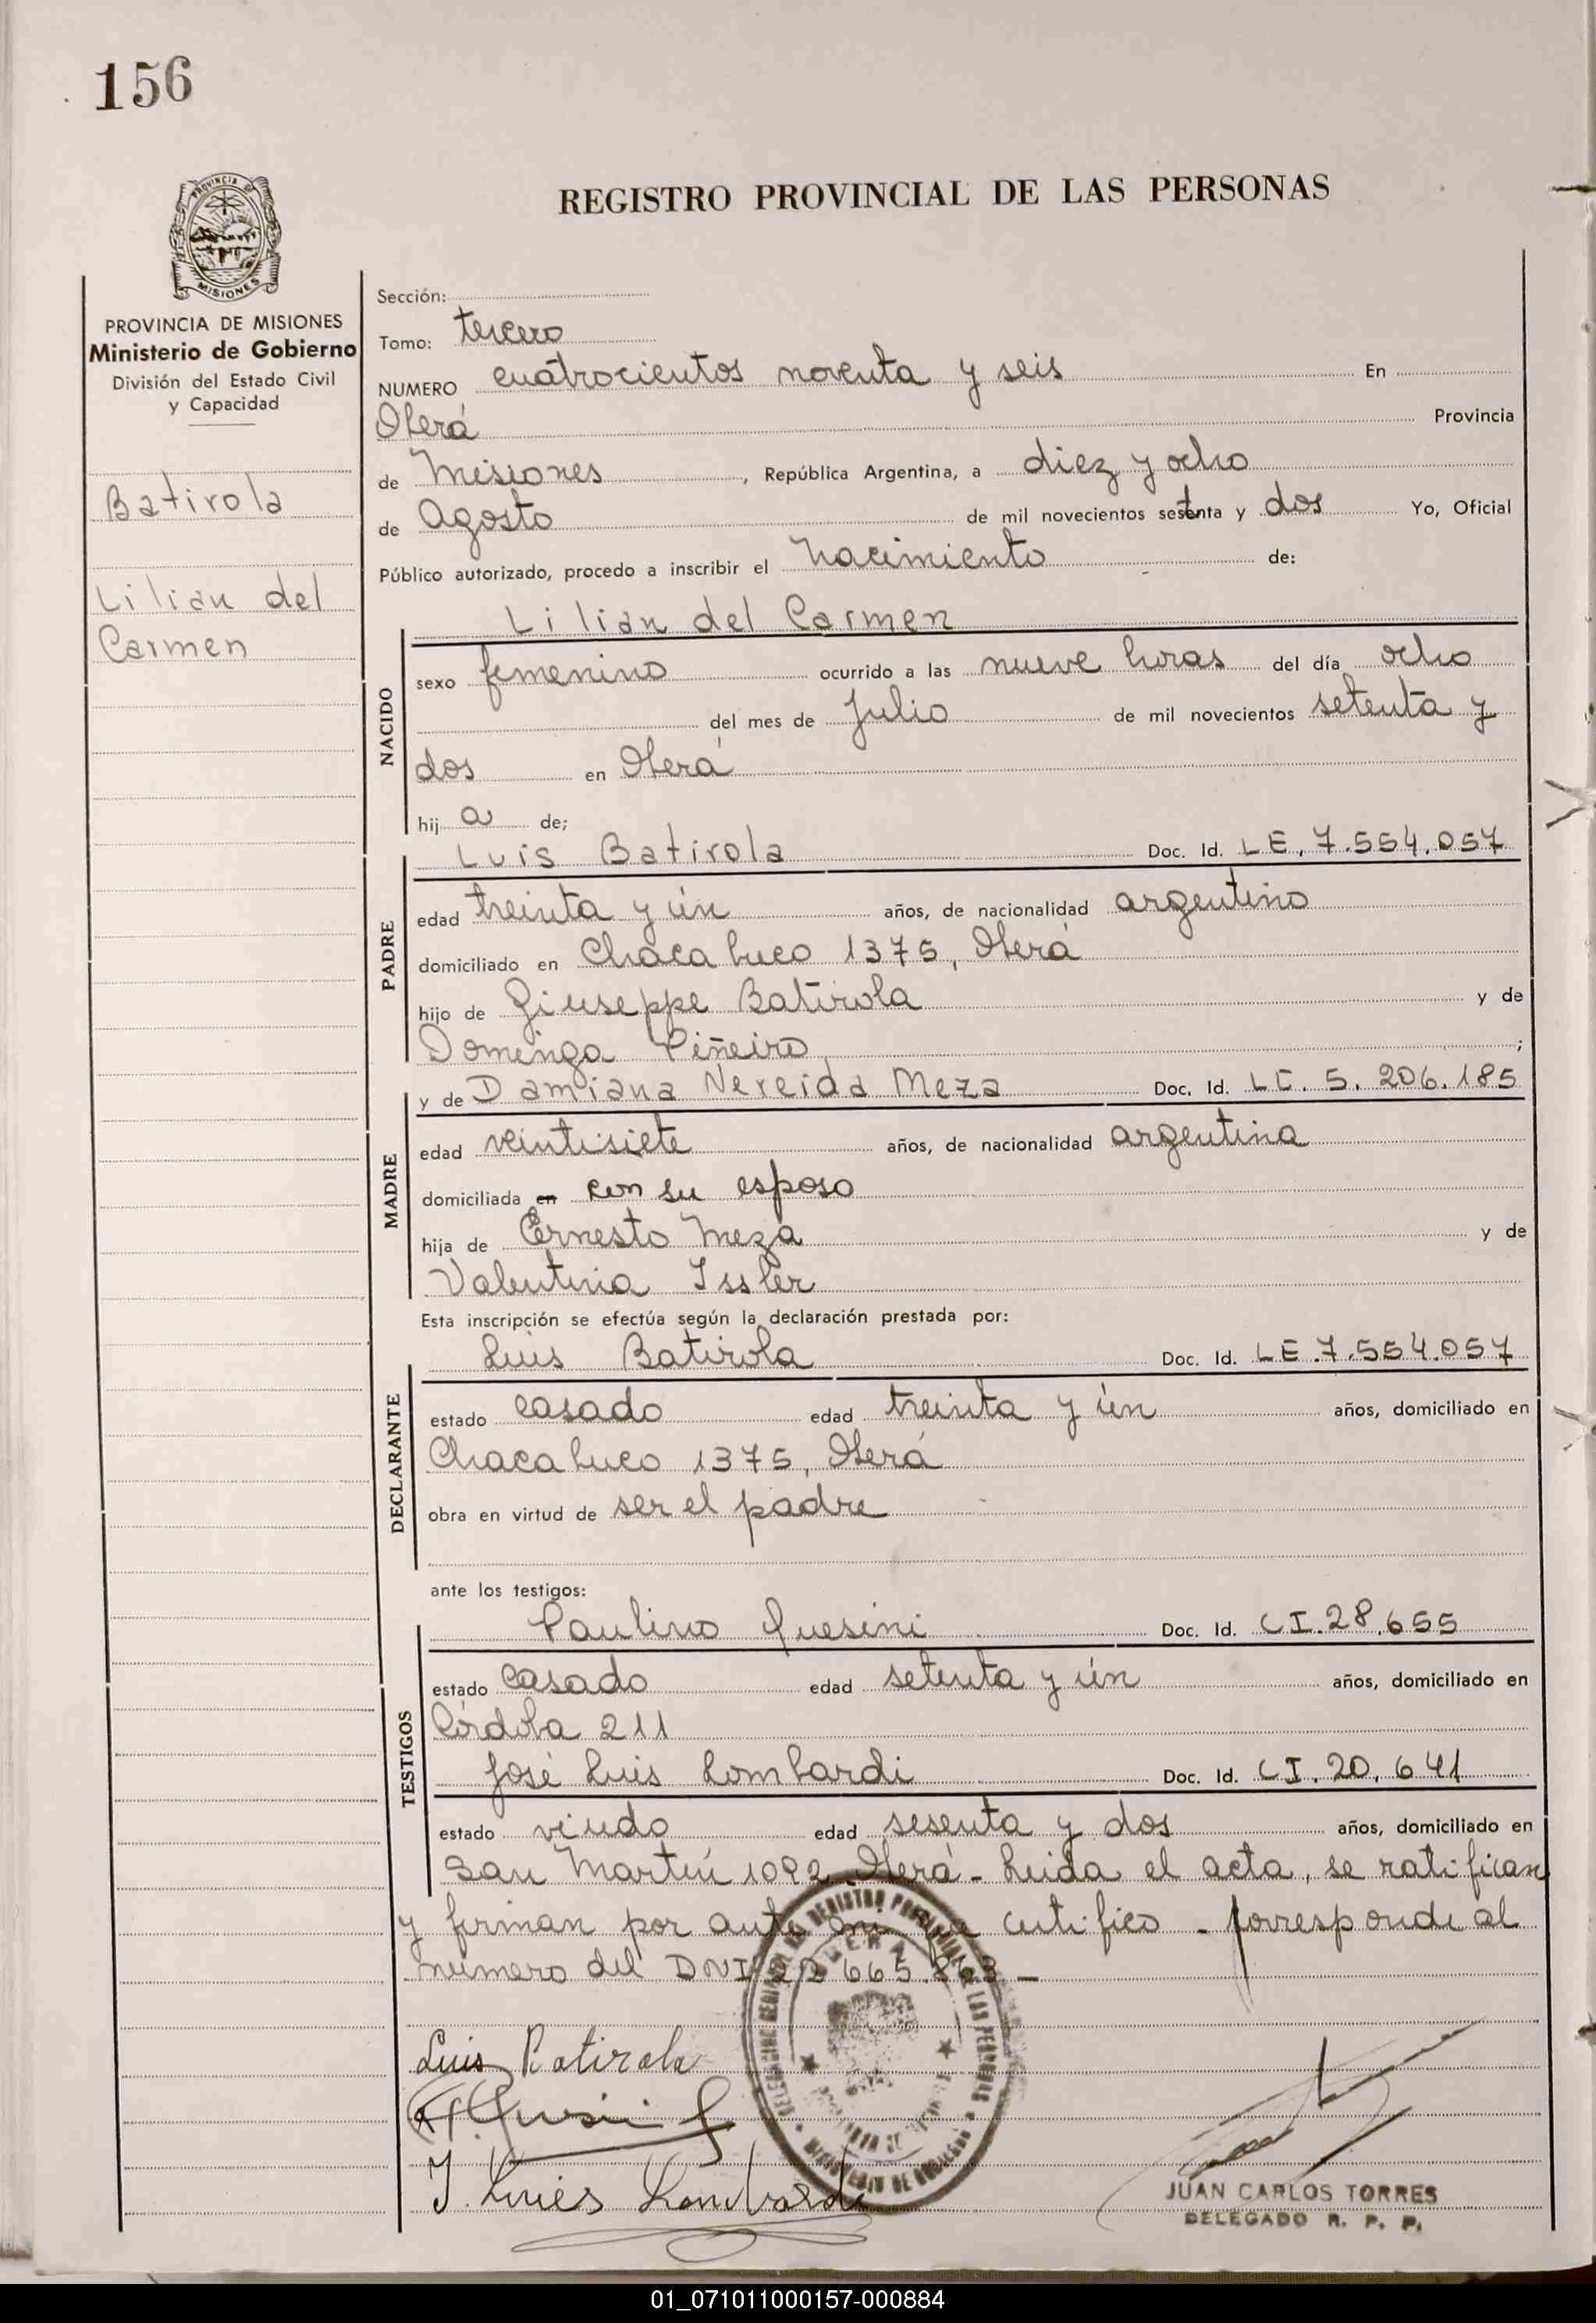 156
REGISTRO PROVINCIAL DE LAS PERSONAS
PROVINCIA DE MISIONES
Ministerio de Gobierno
División del Estado Civil
y Capacidad
Batirola
Lilian del
Carmen
Sección:
Tomo: tercero
NUMERO cuatrocientos noventa y seis En
Oberá Provincia
de Misiones, República Argentina, a diez y ocho
de Agosto de mil novecientos setenta y dos Yo, Oficial
Público autorizado, procedo a inscribir el nacimiento de:
Lilian del Carmen
NACIDO
sexo femenino ocurrido a las nueve horas del día ocho
del mes de Julio de mil novecientos setenta y
dos en Oberá
hij a de;
Luis Batirola Doc. Id. LE. 7.554.057
PADRE
edad treinta y ún años, de nacionalidad argentino
domiciliado en Chacabuco 1375, Oberá
hijo de Giuseppe Batirola y de
Dominga Piñeiro ;
y de Damiana Nereida Meza Doc. Id. LC. 5. 206.185
MADRE
edad veintisiete años, de nacionalidad argentina
domiciliada en con su esposo
hija de Ernesto Meza y de
Valentina Issler
Esta inscripción se efectúa según la declaración prestada por:
Luis Batirola Doc. Id. LE.7.554.057
DECLARANTE
estado casado edad treinta y ún años, domiciliado en
Chacabuco 1375, Oberá
obra en virtud de ser el padre
ante los testigos:
Paulino Doc. Id. CI.28.655
TESTIGOS
estado casado edad setenta y ún años, domiciliado en
Córdoba 211
José Luis Lombardi Doc. Id. CI. 20.641
estado viudo edad sesenta y dos años, domiciliado en
San Martín 1092 Oberá - Leida el acta, se ratifican
y firman por ante mi que certifico - Corresponde al
número del DNI 665
Luis Batirola
J. Luis Lombardi
JUAN CARLOS TORRES
DELEGADO R. P. P.
01_071011000157-000884